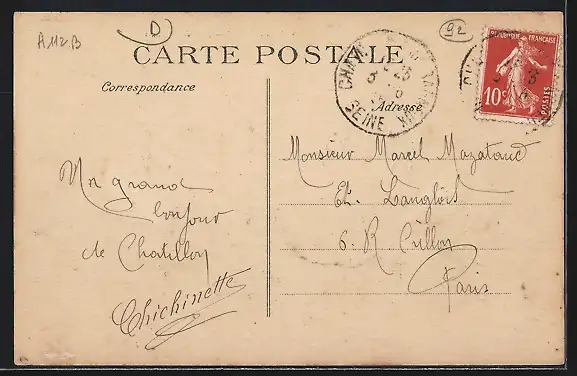 A 112 B
D
92
CARTE POSTALE
Correspondance
Adresse
SEINE
REPUBLIQUE FRANÇAISE
10c
POSTES
Un grand
bonjour
de Chatillon
Chichinette
Monsieur Marcel Mazataud
Et. Langlois
6. R Crillon
Paris